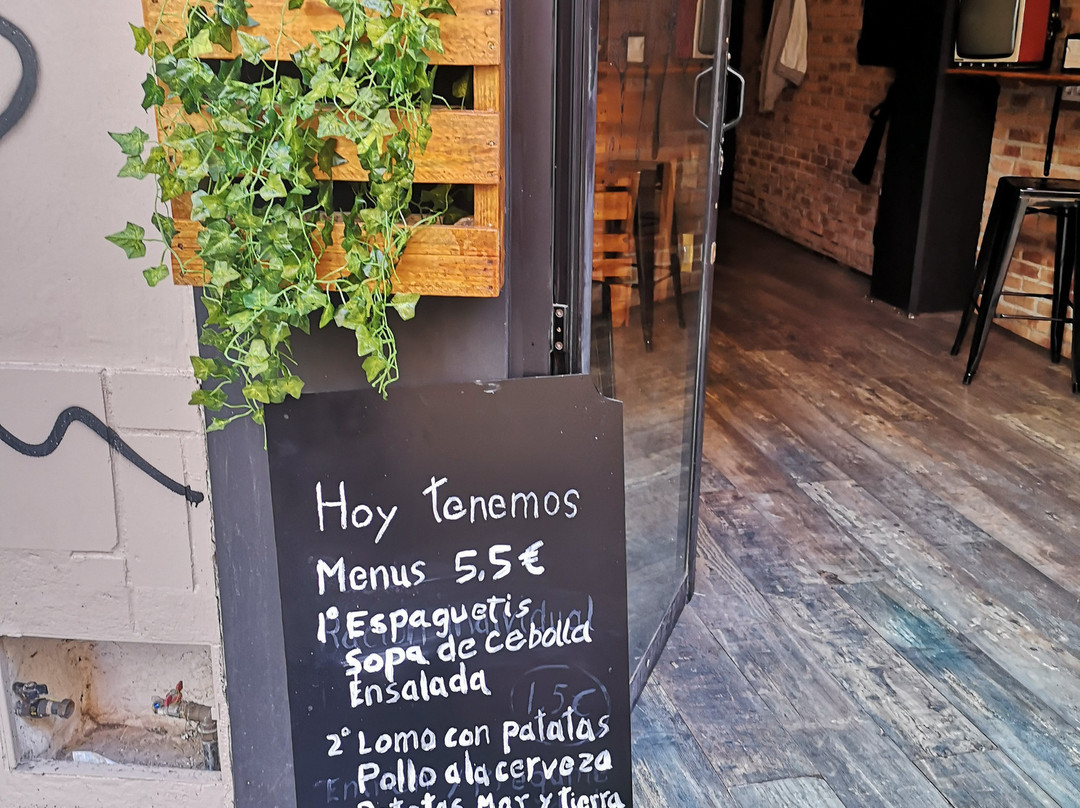 Hoy tenemos
Menus 5,5€
1º Espaguetis
Sopa de cebolla
Ensalada
2º Lomo con patatas
Pollo a la cerveza
Patatas Mar y tierra